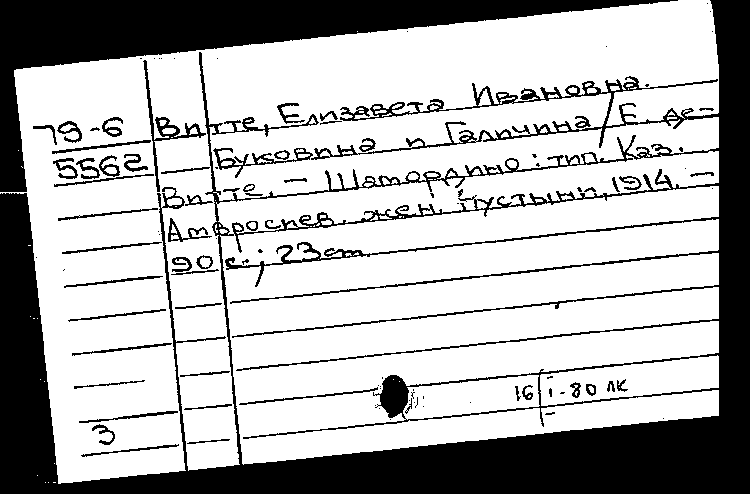 79-6 Витте, Елизавета Ивановна.
5562 Буковина и Галичина / Е. де-
Витте. — Шамордино: тип. Каз.
Амвросиев. жен. пустыни, 1914. —
90 с.; 23 cm.
16 1-80 ЛК
3